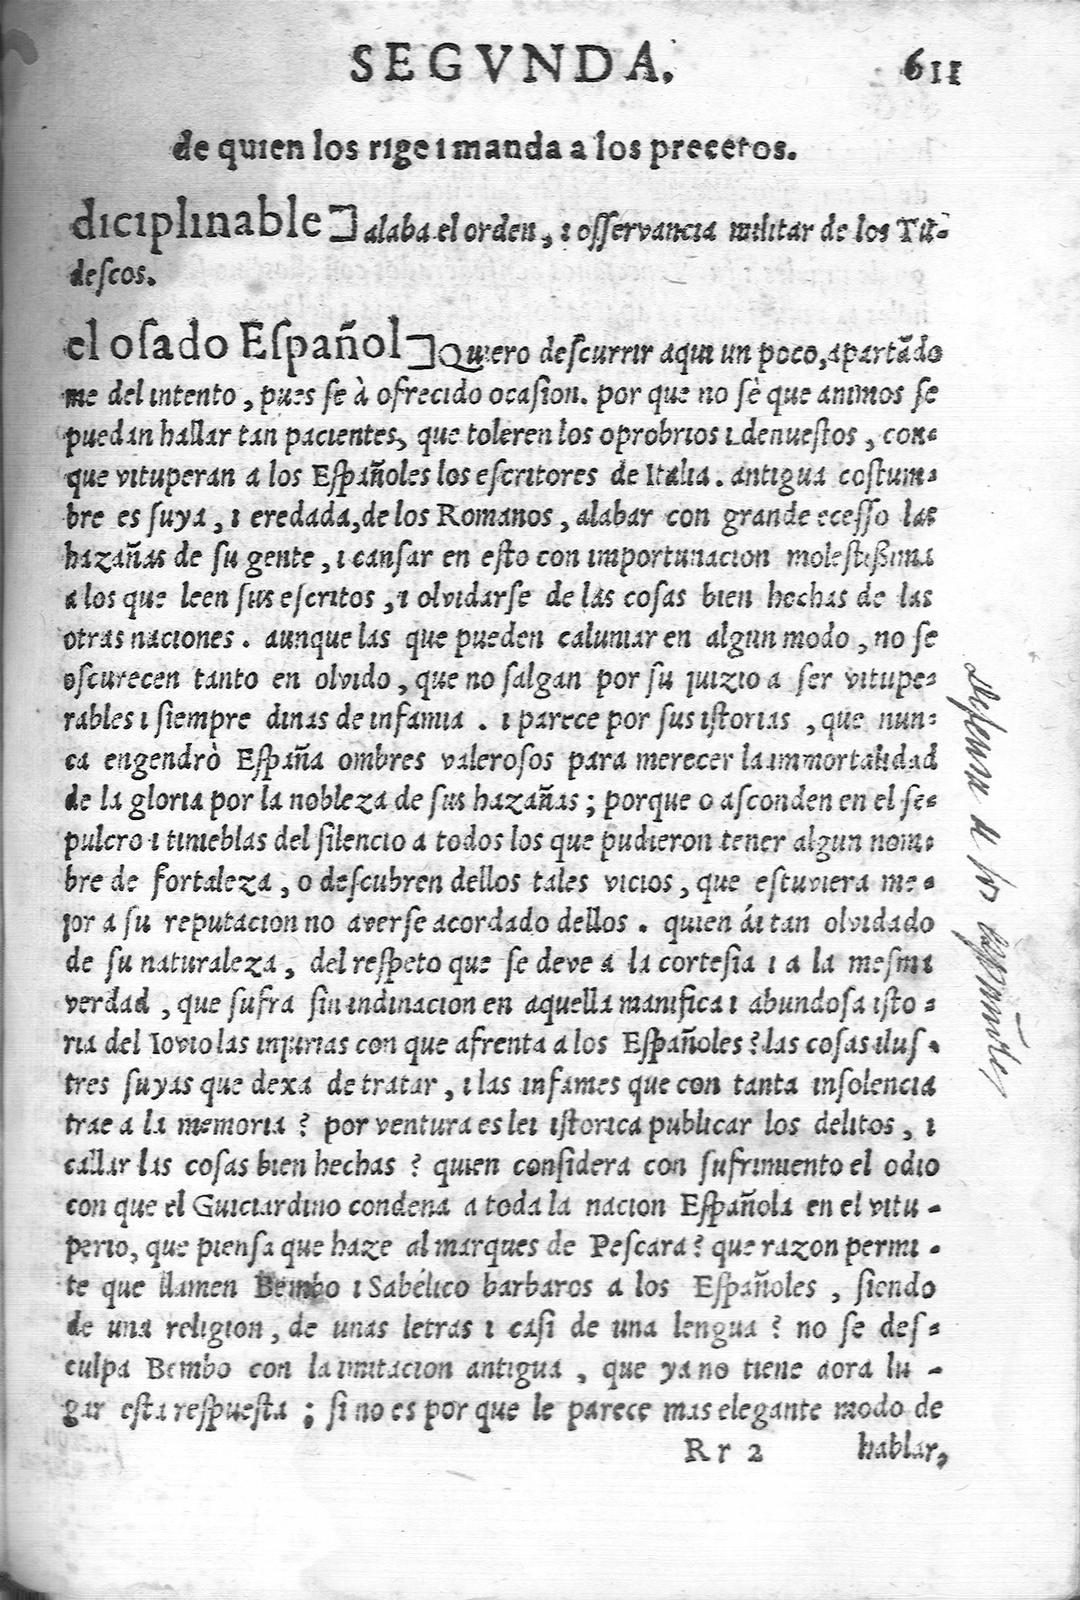 SEGVNDA. 611
de quien los rige i manda a los precetos.
diciplinable] alaba el orden, i osservancia militar de los Tu-
descos.
el osado Español] Quiero descurrir aqui un poco, apartādo
me del intento, pues se à ofrecido ocasion. por que no sè que animos se
puedan hallar tan pacientes, que toleren los oprobrios i denuestos, con-
que vituperan a los Españoles los escritores de Italia. antigua costum-
bre es suya, i eredada, de los Romanos, alabar con grande ecesso las
hazañas de su gente, i cansar en esto con importunacion molestissima
a los que leen sus escritos, i olvidarse de las cosas bien hechas de las
otras naciones. aunque las que pueden caluniar en algun modo, no se
oscurecen tanto en olvido, que no salgan por su juizio a ser vitupe-
rables i siempre dinas de infamia. i parece por sus istorias, que nun-
ca engendrò España ombres valerosos para merecer la immortalidad
de la gloria por la nobleza de sus hazañas; porque o asconden en el se-
pulcro i tinieblas del silencio a todos los que pudieron tener algun nom-
bre de fortaleza, o descubren dellos tales vicios, que estuviera me-
jor a su reputacion no averse acordado dellos. quien ái tan olvidado
de su naturaleza, del respeto que se deve a la cortesia i a la mesma
verdad, que sufra sin indinacion en aquella manifica i abundosa isto-
ria del Iovio las injurias con que afrenta a los Españoles? las cosas ilus-
tres suyas que dexa de tratar, i las infames que con tanta insolencia
trae a la memoria? por ventura es lei istorica publicar los delitos, i
callar las cosas bien hechas? quien considera con sufrimiento el odio
con que el Guiciardino condena a toda la nacion Española en el vitu-
perio, que piensa que haze al marques de Pescara? que razon permi-
te que llamen Bembo i Sabélico barbaros a los Españoles, siendo
de una religion, de unas letras i casi de una lengua? no se des-
culpa Bembo con la imitacion antigua, que ya no tiene aora lu-
gar esta respuesta; si no es por que le parece mas elegante modo de
Rr 2 hablar,
de los españoles